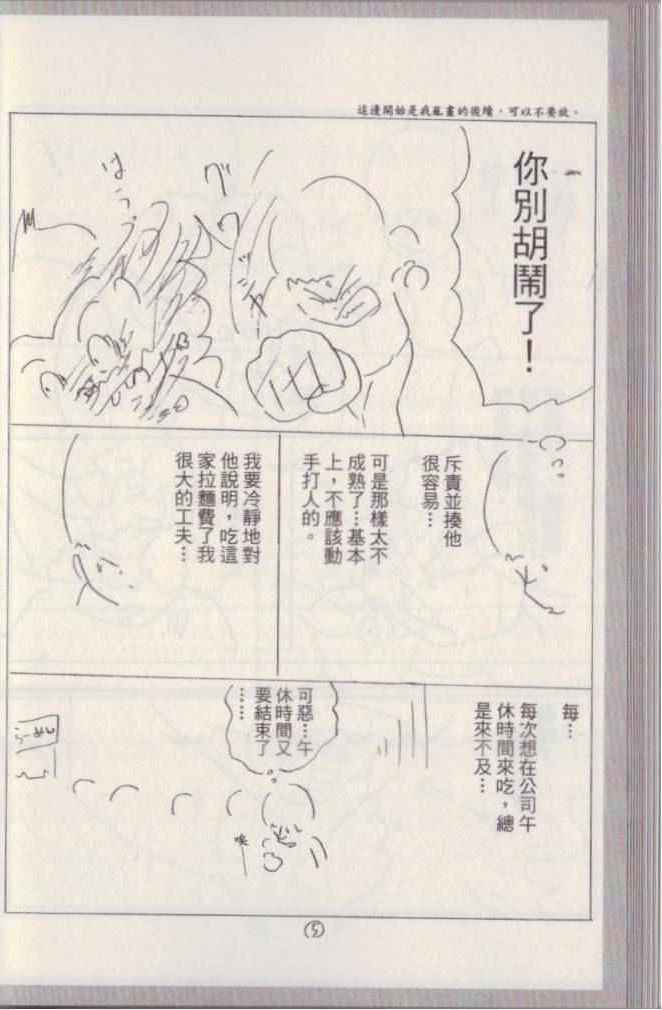 這邊開始是我亂畫的後續，可以不要放。
你別胡鬧了！
グワッシャ
はうっ
斥責並揍他
很容易…
可是那樣太不
成熟了…基本
上，不應該動
手打人的。
我要冷靜地對
他說明，吃這
家拉麵費了我
很大的工夫…
每…
每次想在公司午
休時間來吃，總
是來不及…
可惡…午
休時間又
要結束了
……
(5)